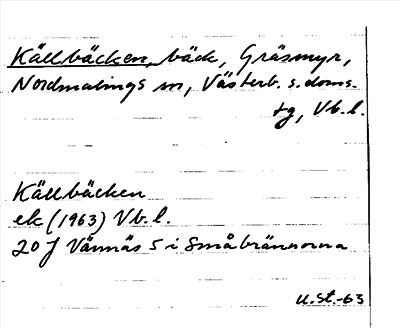 Källbäcken, bäck, Gräsmyr,
Nordmalings sn, Västerb. s. doms.
tg, Vb. l.
Källbäcken
ek (1963) Vb. l.
20 J Vännäs S i Småbrännorna
U. St. -63